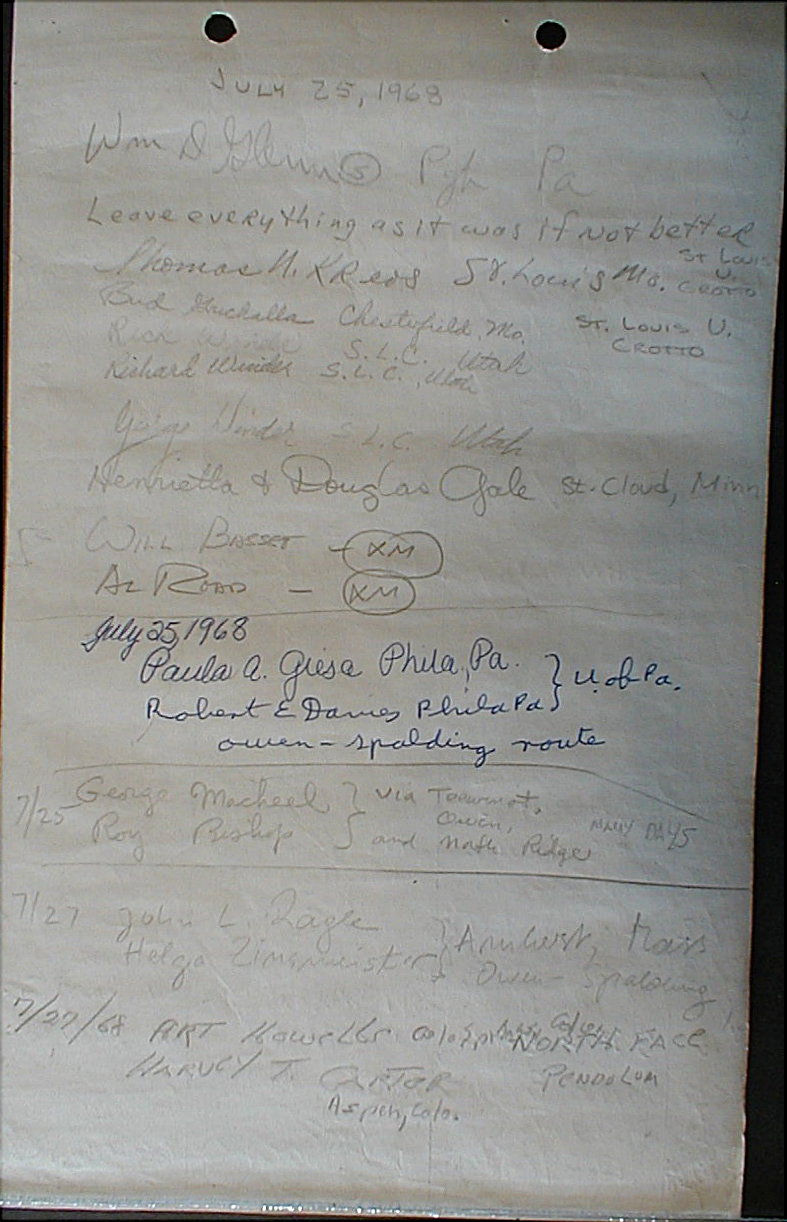 JULY 25, 1968
Wm D Glenn (S) Pgh Pa
Leave everything as it was if not better
Thomas N. Kreos St. Louis Mo. St Louis U. CROTTO
Bud Chesterfield, Mo. ST. LOUIS U. CROTTO
Rick Winder S.L.C. Utah
Richard Winder S.L.C., Utah
George Winder S.L.C. Utah
Henrietta & Douglas Gale St. Cloud, Minn
WILL BASSET - XM
AL - XM
July 25, 1968
Paula A. Giese Phila, Pa. } U. of Pa.
Robert E Davies Phila Pa }
owen-spalding route
7/25 George Macheel } via
Owen, MANY DAYS
Roy Bishop } and North Ridge
7/27 John L. Ragle } Amherst, Mass
Helga Zinsmeister } Owen-Spalding
7/27/68 ART HOWELLS Colo Sprngs, Colo. NORTH FACE
HARVEY T. CARTER PENDULUM
Aspen, Colo.